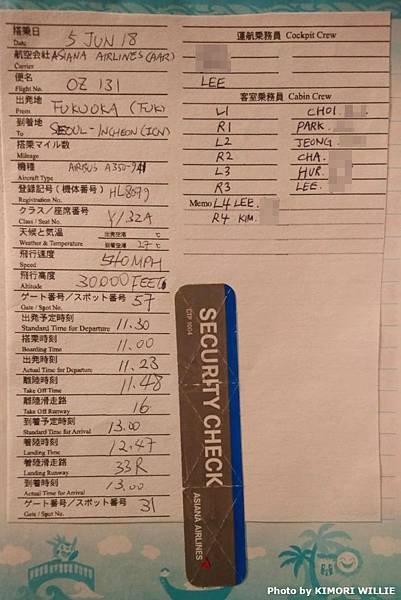 搭乗日 Date 5 JUN 18
航空会社 Carrier ASIANA AIRLINES (AAR)
便名 Flight No. OZ 131
出発地 From FUKUOKA (FUK)
到着地 To SEOUL-INCHEON (ICN)
搭乗マイル数 Mileage
機種 Aircraft Type AIRBUS A350-941
登録記号(機体番号) Registration No. HL8079
クラス/座席番号 Class / Seat No. Y/32A
天候と気温 Weather & Temperature 出発空港 ℃
到着空港 27℃
飛行速度 Speed 540MPH
飛行高度 Altitude 30000FEET
ゲート番号/スポット番号 Gate / Spot No. 57
出発予定時刻 Standard Time for Departure 11.30
搭乗時刻 Boarding Time 11.00
出発時刻 Actual Time for Departure 11.23
離陸時刻 Take Off Time 11.48
離陸滑走路 Take Off Runway 16
到着予定時刻 Standard Time for Arrival 13.00
着陸時刻 Landing Time 12.47
着陸滑走路 Landing Runway 33R
到着時刻 Actual Time for Arrival 13.00
ゲート番号/スポット番号 Gate / Spot No. 31
運航乗務員 Cockpit Crew
LEE
客室乗務員 Cabin Crew
L1 CHOI.
R1 PARK.
L2 JEONG.
R2 CHA.
L3 HUR.
R3 LEE.
Memo L4 LEE.
R4 KIM.
SECURITY CHECK
CTP 1004
ASIANA AIRLINES
Photo by KIMORI WILLIE